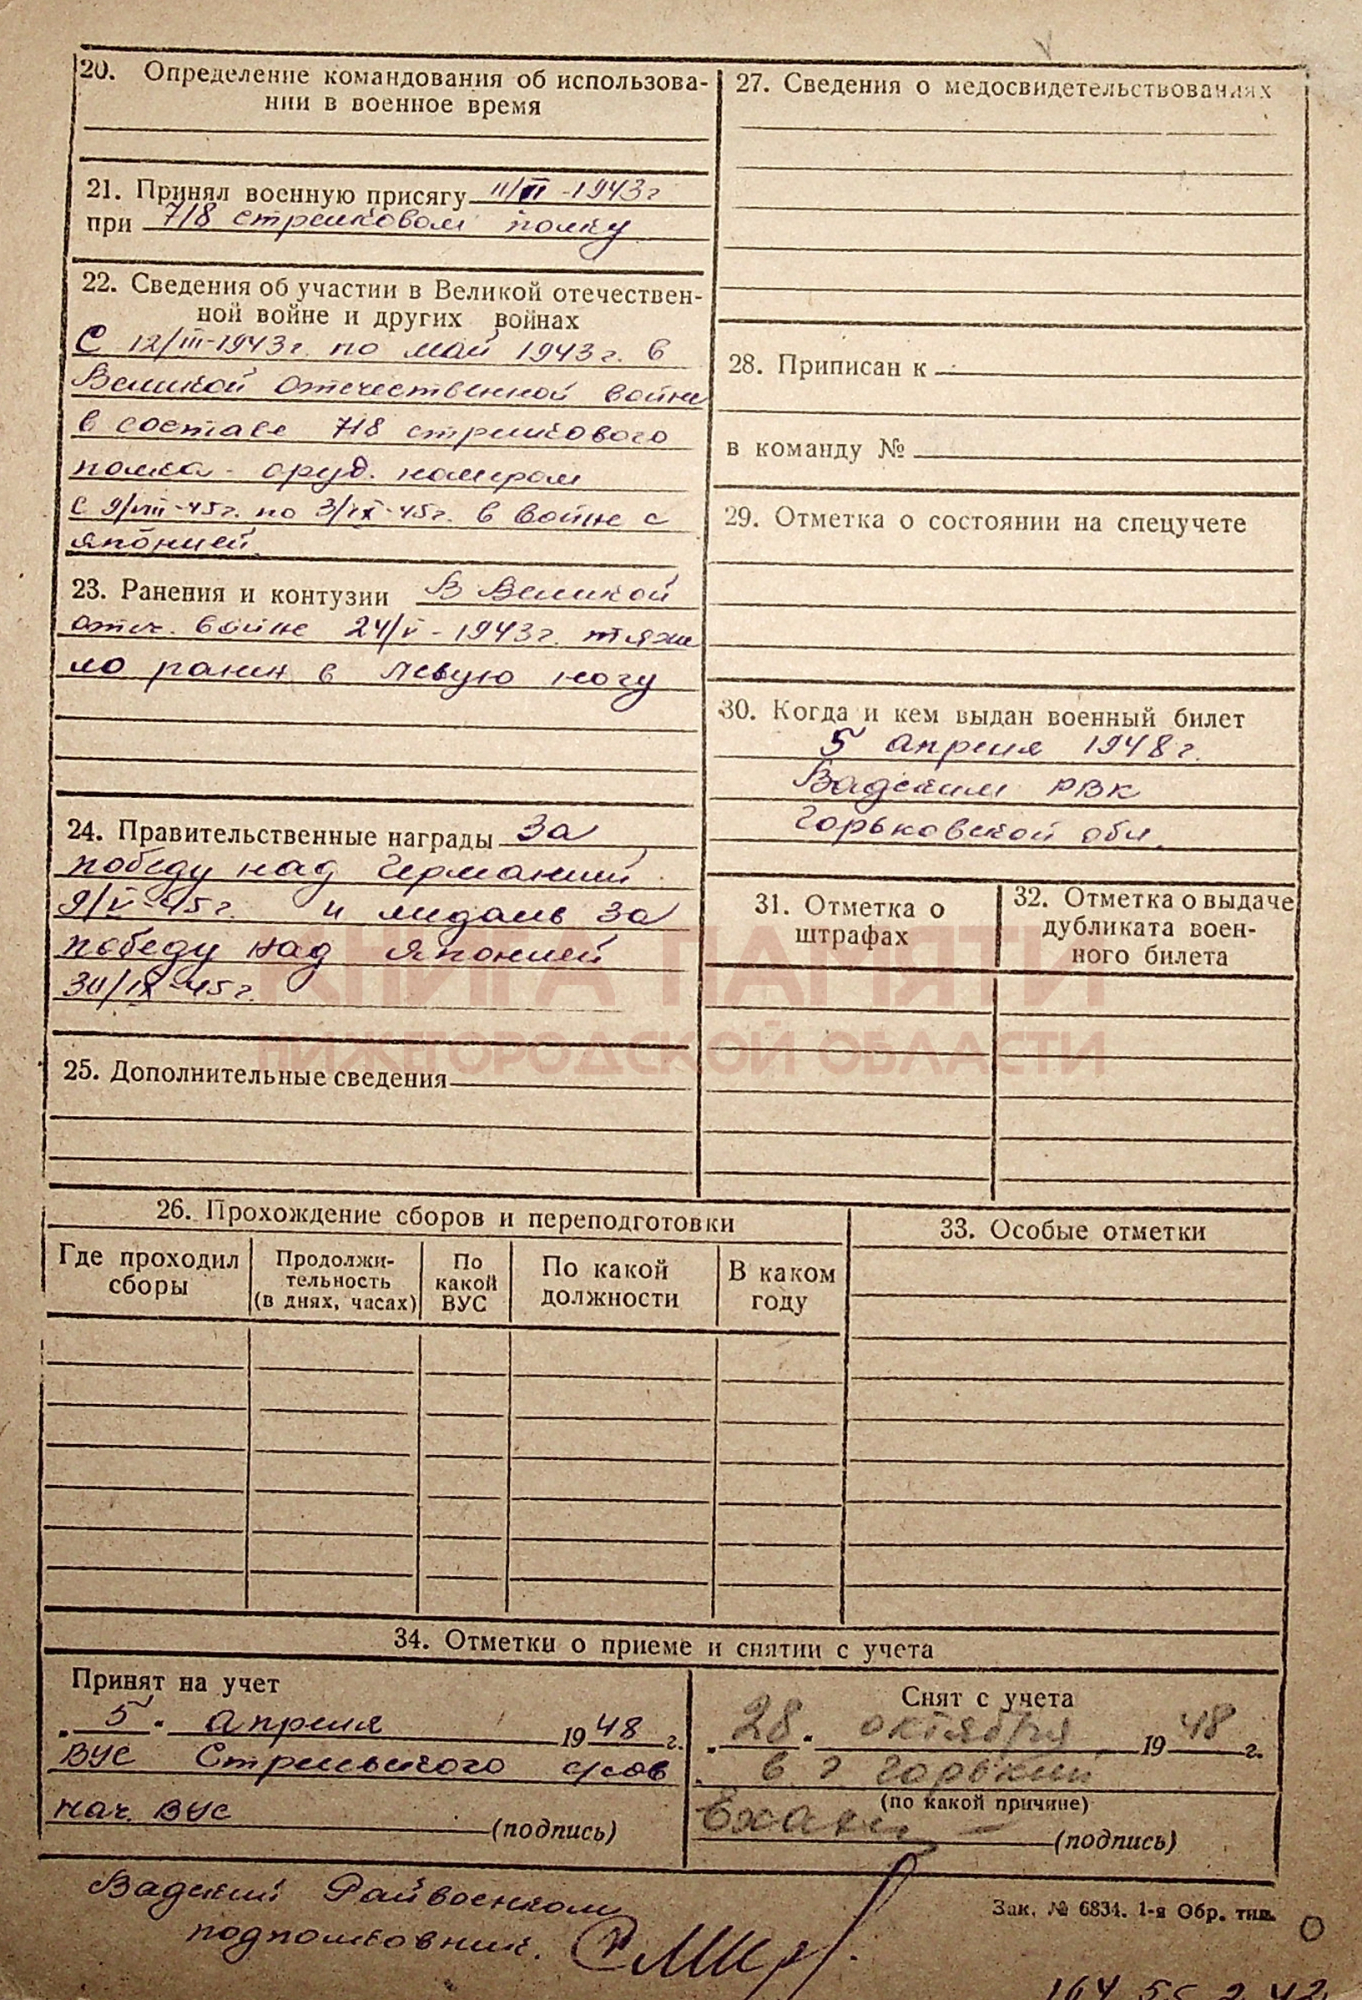 20. Определение командования об использова-
нии в военное время
21. Принял военную присягу 11/VI -1943г
при 718 стрелковом полку
22. Сведения об участии в Великой отечествен-
ной войне и других войнах
С 12/III-1943г. по май 1943г. в
Великой отечественной войне
в составе 718 стрелкового
полка - оруд. номером
с 9/VIII-45г. по 3/IX-45г. в войне с
японией.
23. Ранения и контузии В Великой
отеч. войне 24/V-1943г. тяже
ло ранен в левую ногу
24. Правительственные награды За
победу над Германией
9/V-45г. и медаль за
победу над Японией
30/IX-45г.
25. Дополнительные сведения
26. Прохождение сборов и переподготовки
Где проходил
сборы
Продолжи-
тельность
(в днях, часах)
По
какой
ВУС
По какой
должности
В каком
году
27. Сведения о медосвидетельствованиях
28. Приписан к
в команду №
29. Отметка о состоянии на спецучете
30. Когда и кем выдан военный билет
5 апреля 1948г.
Вадским РВК
Горьковской обл.
31. Отметка о
штрафах
32. Отметка о выдаче
дубликата воен-
ного билета
33. Особые отметки
КНИГА ПАМЯТИ
НИЖЕГОРОДСКОЙ ОБЛАСТИ
34. Отметки о приеме и снятии с учета
Принят на учет
„5“ апреля 1948 г.
ВУС Стрельского с/сов
нач. ВУС (подпись)
Снят с учета
„28“ октября 1948 г.
в г Горький
(по какой причине)
(подпись)
Вадский Райвоенком
подполковник.
Зак. № 6834. 1-я Обр. тип.